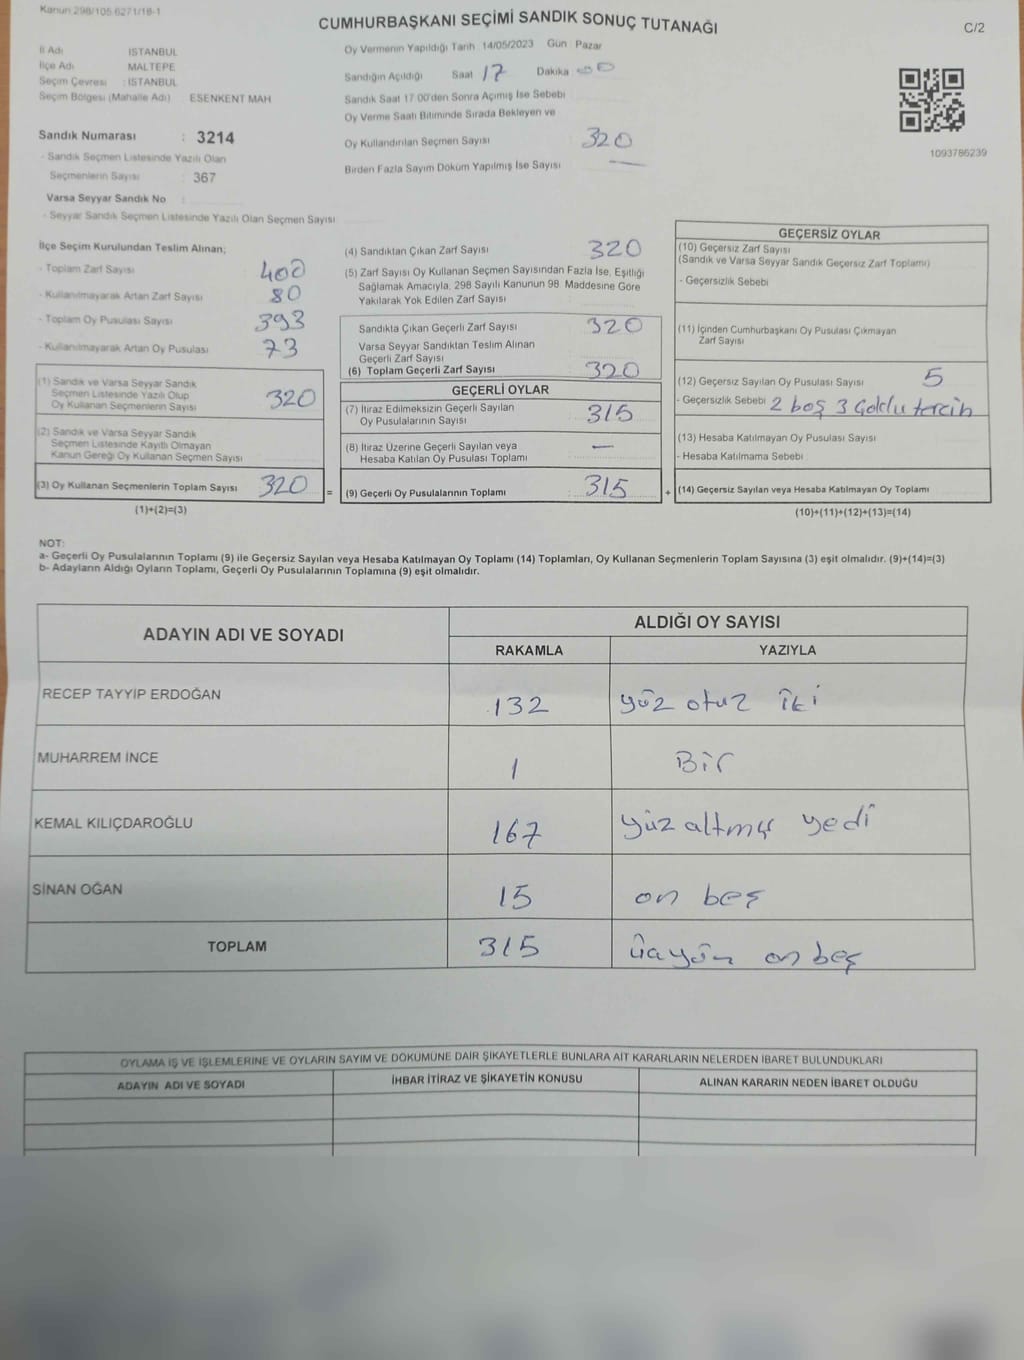 Kanun 298/105 6271/18-1
CUMHURBAŞKANI SEÇİMİ SANDIK SONUÇ TUTANAĞI
C/2
İl Adı : İSTANBUL
İlçe Adı : MALTEPE
Seçim Çevresi : İSTANBUL
Seçim Bölgesi (Mahalle Adı) : ESENKENT MAH
Sandık Numarası : 3214
- Sandık Seçmen Listesinde Yazılı Olan
Seçmenlerin Sayısı : 367
Varsa Seyyar Sandık No :
- Seyyar Sandık Seçmen Listesinde Yazılı Olan Seçmen Sayısı
Oy Vermenin Yapıldığı Tarih : 14/05/2023 Gün : Pazar
Sandığın Açıldığı Saat 17 Dakika : 00
Sandık Saat 17:00'den Sonra Açılmış İse Sebebi
Oy Verme Saati Bitiminde Sırada Bekleyen ve
Oy Kullandırılan Seçmen Sayısı : 320
Birden Fazla Sayım Döküm Yapılmış İse Sayısı : —
1093786239
İlçe Seçim Kurulundan Teslim Alınan;
- Toplam Zarf Sayısı : 400
- Kullanılmayarak Artan Zarf Sayısı : 80
- Toplam Oy Pusulası Sayısı : 393
- Kullanılmayarak Artan Oy Pusulası : 73
(1) Sandık ve Varsa Seyyar Sandık
Seçmen Listesinde Yazılı Olup
Oy Kullanan Seçmenlerin Sayısı : 320
(2) Sandık ve Varsa Seyyar Sandık
Seçmen Listesinde Kayıtlı Olmayan
Kanun Gereği Oy Kullanan Seçmen Sayısı :
(3) Oy Kullanan Seçmenlerin Toplam Sayısı : 320 =
(1)+(2)=(3)
(4) Sandıktan Çıkan Zarf Sayısı : 320
(5) Zarf Sayısı Oy Kullanan Seçmen Sayısından Fazla İse, Eşitliği
Sağlamak Amacıyla, 298 Sayılı Kanunun 98. Maddesine Göre
Yakılarak Yok Edilen Zarf Sayısı :
Sandıkta Çıkan Geçerli Zarf Sayısı : 320
Varsa Seyyar Sandıktan Teslim Alınan
Geçerli Zarf Sayısı :
(6) Toplam Geçerli Zarf Sayısı : 320
GEÇERLİ OYLAR
(7) İtiraz Edilmeksizin Geçerli Sayılan
Oy Pusulalarının Sayısı : 315
(8) İtiraz Üzerine Geçerli Sayılan veya
Hesaba Katılan Oy Pusulası Toplamı : —
(9) Geçerli Oy Pusulalarının Toplamı : 315 +
GEÇERSİZ OYLAR
(10) Geçersiz Zarf Sayısı
(Sandık ve Varsa Seyyar Sandık Geçersiz Zarf Toplamı)
- Geçersizlik Sebebi :
(11) İçinden Cumhurbaşkanı Oy Pusulası Çıkmayan
Zarf Sayısı :
(12) Geçersiz Sayılan Oy Pusulası Sayısı : 5
- Geçersizlik Sebebi : 2 boş 3 Çoklu tercih
(13) Hesaba Katılmayan Oy Pusulası Sayısı :
- Hesaba Katılmama Sebebi :
(14) Geçersiz Sayılan veya Hesaba Katılmayan Oy Toplamı :
(10)+(11)+(12)+(13)=(14)
NOT:
a- Geçerli Oy Pusulalarının Toplamı (9) ile Geçersiz Sayılan veya Hesaba Katılmayan Oy Toplamı (14) Toplamları, Oy Kullanan Seçmenlerin Toplam Sayısına (3) eşit olmalıdır. (9)+(14)=(3)
b- Adayların Aldığı Oyların Toplamı, Geçerli Oy Pusulalarının Toplamına (9) eşit olmalıdır.
ADAYIN ADI VE SOYADI
ALDIĞI OY SAYISI
RAKAMLA YAZIYLA
RECEP TAYYİP ERDOĞAN 132 yüz otuz iki
MUHARREM İNCE 1 Bir
KEMAL KILIÇDAROĞLU 167 yüz altmış yedi
SİNAN OĞAN 15 on beş
TOPLAM 315 üçyüz on beş
OYLAMA İŞ VE İŞLEMLERİNE VE OYLARIN SAYIM VE DÖKÜMÜNE DAİR ŞİKAYETLERLE BUNLARA AİT KARARLARIN NELERDEN İBARET BULUNDUKLARI
ADAYIN ADI VE SOYADI İHBAR İTİRAZ VE ŞİKAYETİN KONUSU ALINAN KARARIN NEDEN İBARET OLDUĞU